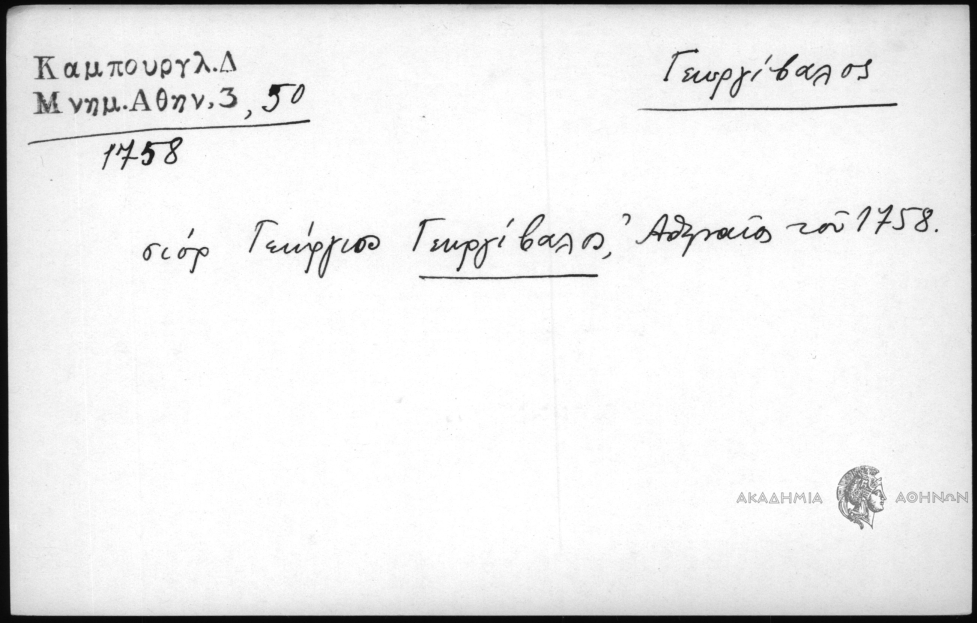 Καμπουργλ.Δ
Μνημ.Αθην.3, 50
1758
Γεωργίβαλος
σιόρ Γεώργιος Γεωργίβαλος, Ἀθηναῖος τοῦ 1758.
ΑΚΑΔΗΜΙΑ ΑΘΗΝΩΝ